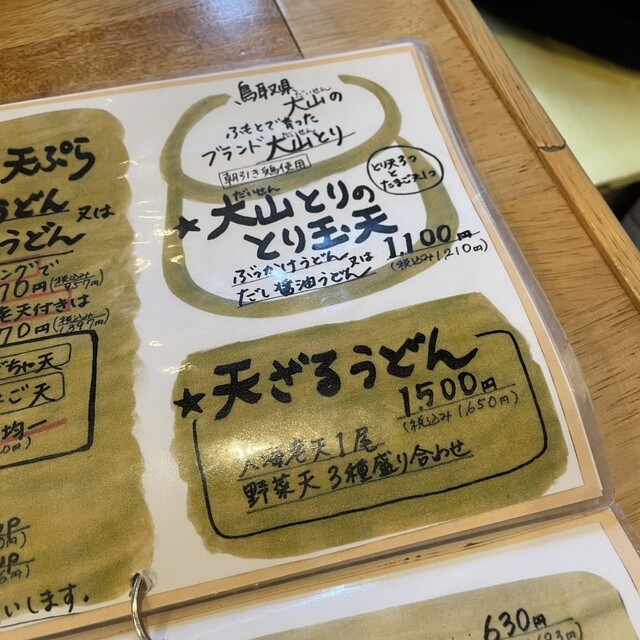 天ぷら
うどん 又は
うどん
ングで
70円
老天付きは
70円
ちゃ天
ご天
均一
鳥取県 大山の
だいせん
ふもとで育った
だいせん
ブランド 大山とり
朝引き鶏使用
とり天3つ
と
たまご天1つ
だいせん
★大山とりの
とり玉天
1100円
(税込み1210円)
ぶっかけうどん 又は
だし醤油うどん
★天ざるうどん
1500円
(税込み1,650円)
大海老天1尾
野菜天3種盛り合わせ
いします。
630円